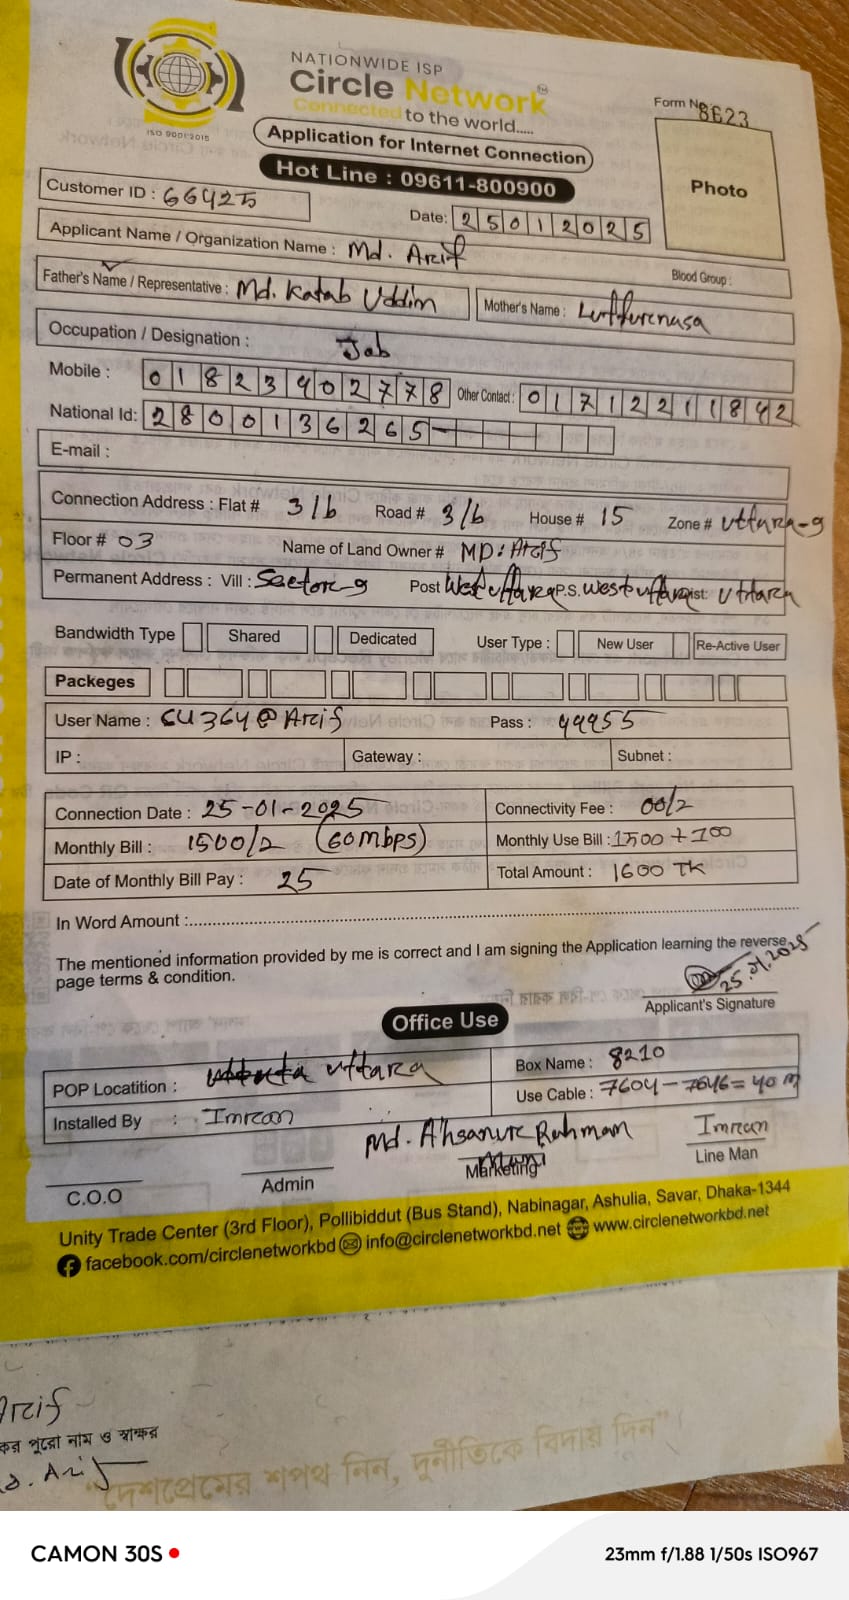 NATIONWIDE ISP
Circle Network
Connected to the world.....
ISO 9001:2015
Form No. 8623
Application for Internet Connection
Hot Line : 09611-800900
Photo
Customer ID : 66425
Date: 25012025
Applicant Name / Organization Name : Md. Arif
Blood Group :
Father's Name / Representative : Md. Katab Uddin
Mother's Name : Lutfurnusa
Occupation / Designation : Job
Mobile : 01823402778 Other Contact : 01712211842
National Id: 2800136265
E-mail :
Connection Address : Flat # 3/b Road # 3/b House # 15 Zone # Uttara-9
Floor # 03 Name of Land Owner # MD: Arif
Permanent Address : Vill : Sector-9 Post West uttara P.S. West uttara Dist: Uttara
Bandwidth Type Shared Dedicated User Type : New User Re-Active User
Packeges
User Name : CU364@Arif Pass : 49955
IP : Gateway : Subnet :
Connection Date : 25-01-2025 Connectivity Fee : 00/2
Monthly Bill : 1500/2 (60Mbps) Monthly Use Bill : 1500 + 100
Date of Monthly Bill Pay : 25 Total Amount : 1600 TK
In Word Amount :
The mentioned information provided by me is correct and I am signing the Application learning the reverse
page terms & condition.
25.01.2025
Applicant's Signature
Office Use
POP Locatition : Uttara Box Name : 8210
Installed By : Imran Use Cable : 7604 - 7646 = 40 m
Md. Ahsanur Rahman Imran
C.O.O Admin Marketing Line Man
Unity Trade Center (3rd Floor), Pollibiddut (Bus Stand), Nabinagar, Ashulia, Savar, Dhaka-1344
facebook.com/circlenetworkbd info@circlenetworkbd.net www.circlenetworkbd.net
পুরো নাম ও স্বাক্ষর
"দেশপ্রেমের শপথ নিন, দুর্নীতিকে বিদায় দিন"
CAMON 30S 23mm f/1.88 1/50s ISO967